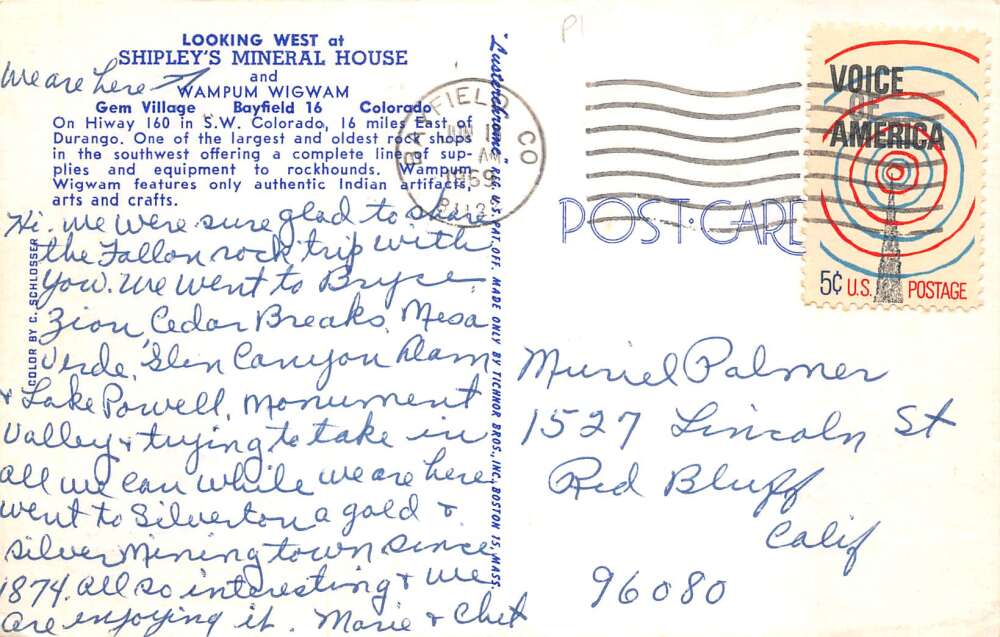 P1
LOOKING WEST at
SHIPLEY'S MINERAL HOUSE
and
WAMPUM WIGWAM
Gem Village Bayfield 16 Colorado
On Hiway 160 in S.W. Colorado, 16 miles East of
Durango. One of the largest and oldest rock shops
in the southwest offering a complete line of sup-
plies and equipment to rockhounds. Wampum
Wigwam features only authentic Indian artifacts,
arts and crafts.
We are here
Hi. We were sure glad to share
the Fallon rock trip with
You. We went to Bryce
Zion, Cedar Breaks, Mesa
Verde, Glen Canyon Dam
& Lake Powell, Monument
Valley & trying to take in
all we can while we are here
went to Silverton a gold &
silver mining town since
1874. All so interesting & we
are enjoying it. Marie & Chet
COLOR BY C. SCHLOSSER
"Lusterchrome" REG. U.S. PAT. OFF. MADE ONLY BY TICHNOR BROS., INC., BOSTON 15, MASS.
BAYFIELD CO
JUN 1
AM
1969
81122
POST CARD
VOICE
OF
AMERICA
5¢ U.S. POSTAGE
Muriel Palmer
1527 Lincoln St
Red Bluff
Calif
96080